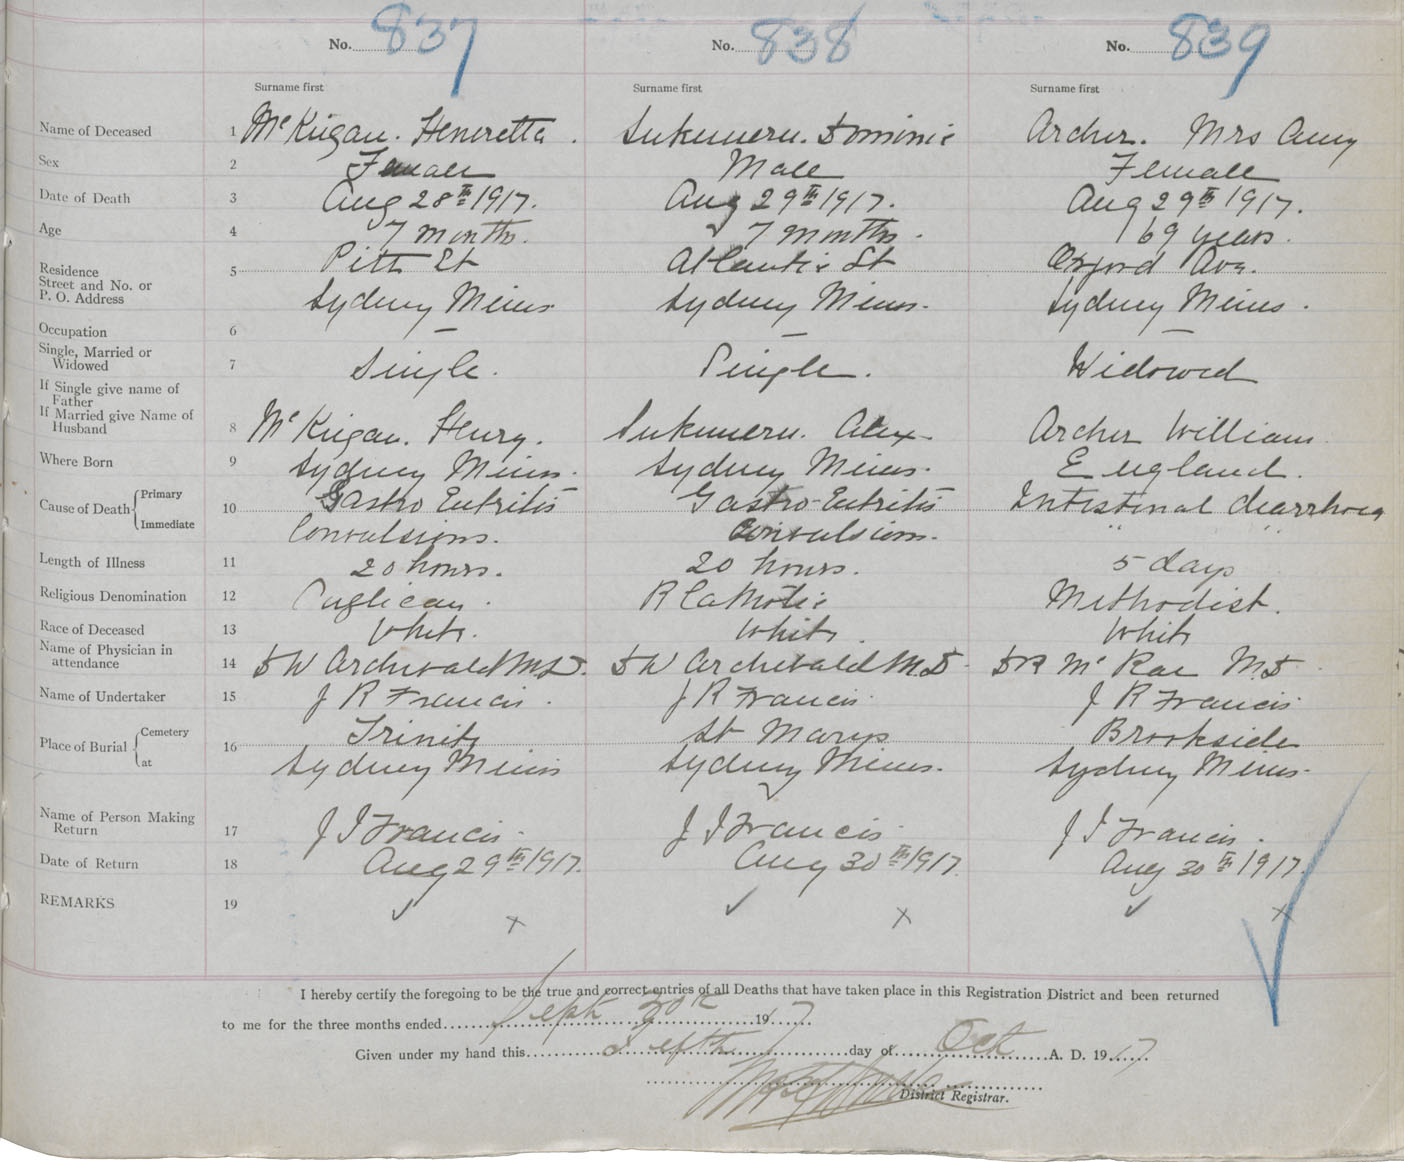 No. 837 No. 838 No. 839
Surname first Surname first Surname first
Name of Deceased 1 McKiigan. Henretta. Dominic Archer. Mrs Amy
Sex 2 Female Male Female
Date of Death 3 Aug 28th 1917. Aug 29th 1917. Aug 29th 1917.
Age 4 7 months. 7 months. 69 years.
Residence Pitt St Atlantic St Oxford Ave.
Street and No. or 5
P. O. Address Sydney Mines Sydney Mines. Sydney Mines.
Occupation 6 — — —
Single, Married or
Widowed 7 Single. Single. Widowed
If Single give name of
Father
If Married give Name of
Husband 8 McKiigan. Henry. Alex. Archer William
Where Born 9 Sydney Mines. Sydney Mines. England.
Cause of Death Primary 10 Gastro Entritis Gastro-Entritis Intestinal diarrhoea
Immediate Convulsions. Convulsions. " "
Length of Illness 11 20 hours. 20 hours. 5 days
Religious Denomination 12 Anglican. R Catholic Methodist.
Race of Deceased 13 White. White. White
Name of Physician in
attendance 14 D W Archibald M.D. D W Archibald M.D. D R McRae M.D.
Name of Undertaker 15 J R Francis. J R Francis. J R Francis.
Place of Burial Cemetery 16 Trinity St Marys Brookside
at Sydney Mines Sydney Mines. Sydney Mines.
Name of Person Making
Return 17 J J Francis. J J Francis. J J Francis.
Date of Return 18 Aug 29th 1917. Aug 30th 1917. Aug 30th 1917.
REMARKS 19 ✓ x ✓ x ✓ x
I hereby certify the foregoing to be the true and correct entries of all Deaths that have taken place in this Registration District and been returned
to me for the three months ended Sept 30th 1917
Given under my hand this fifth day of Oct A. D. 1917
District Registrar.